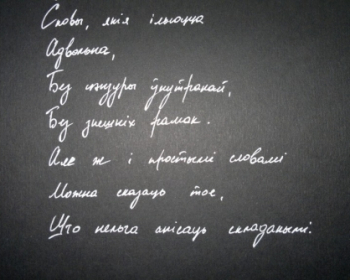 Словы, якія ільюцца
Адвольна,
Без цэнзуры ўнутранай,
Без знешніх рамак.
Але ж і простымі словамі
Можна сказаць тое,
Што нельга апісаць складанымі.